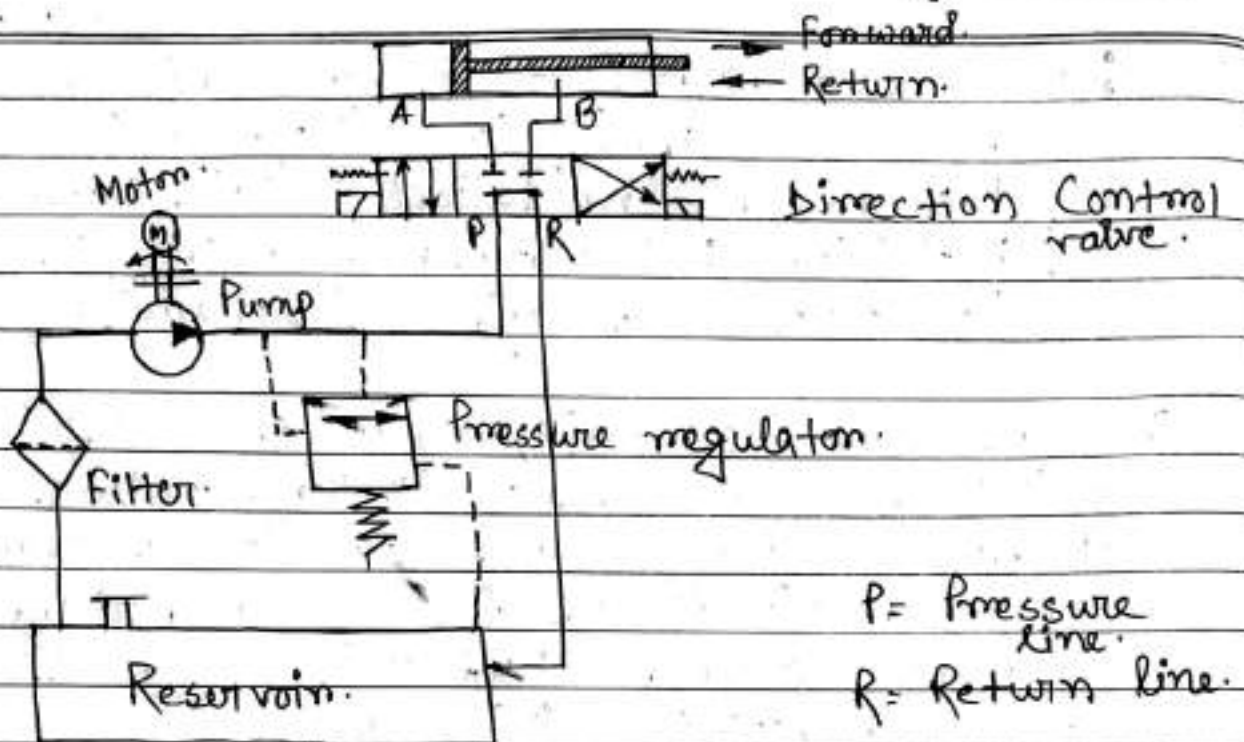 Forward.
Return.
A
B
Motor.
M
Direction Control
valve.
P
R
Pump
Pressure regulator.
Filter.
P= Pressure
line.
R= Return line.
Reservoir.